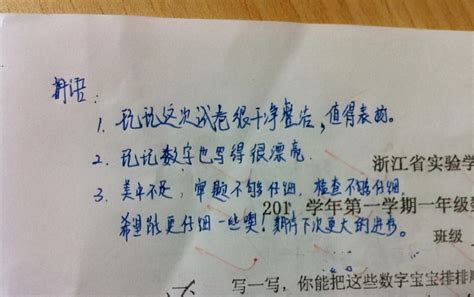 评语：
1. 玘玘这次试卷很干净整洁，值得表扬。
2. 玘玘数字也写得很漂亮
3. 美中不足，审题不够仔细，检查不够仔细
希望能更仔细一些噢！期待下次更大的进步。
浙江省实验学
201 学年第一学期一年级数
班级
写一写，你能把这些数字宝宝排排顺